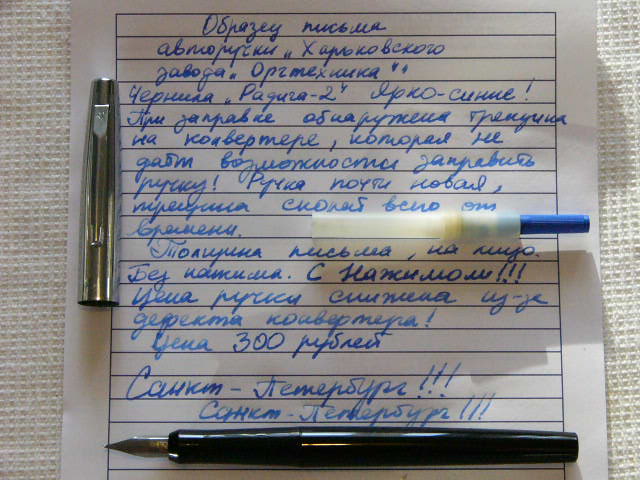 Образец письма
авторучки „Харьковского
завода „Оргтехника"".
Чернила „Радуга-2" Ярко-синие!
При заправке обнаружена трещина
на конвертере, которая не
даёт возможности заправить
ручку! Ручка почти новая,
трещина скорей всего от
времени.
Толщина письма, на лицо.
Без нажима. С Нажимом!!!
Цена ручки снижена из-за
дефекта конвертера!
Цена 300 рублей
Санкт-Петербург!!!
Санкт-Петербург!!!